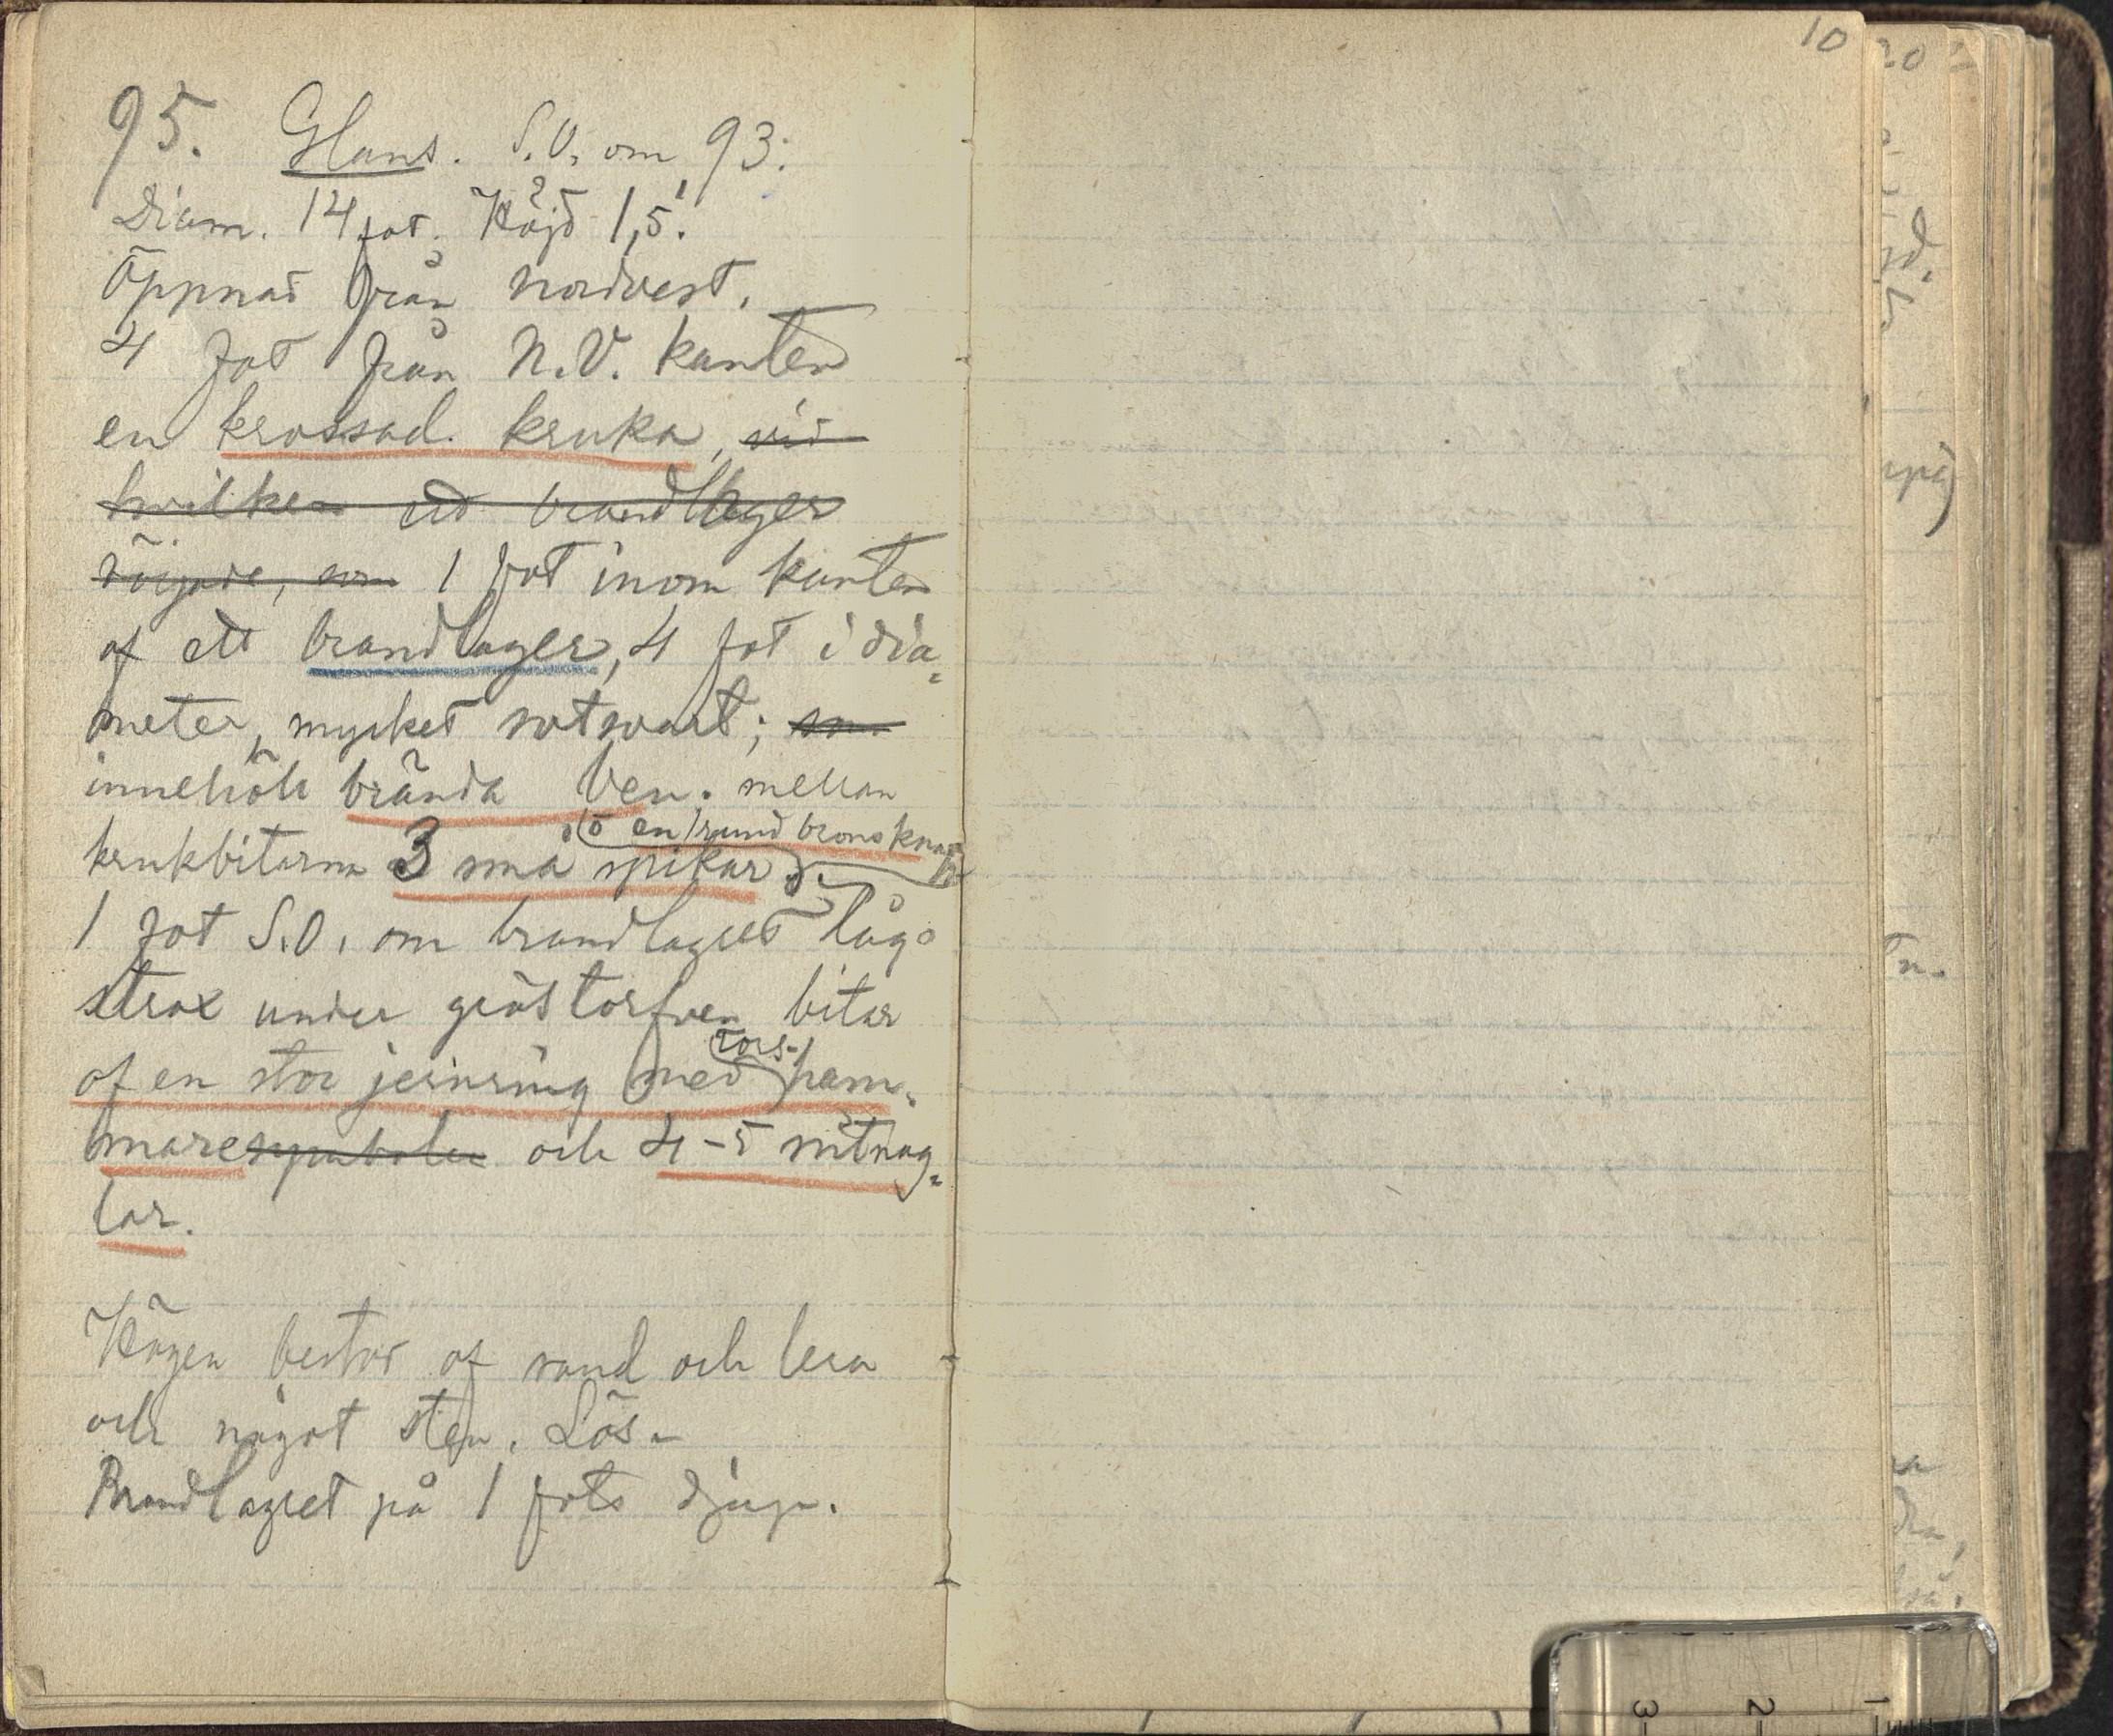 10
95. Hans. S.O. om 93.
Diam. 14 fot. Höjd 1,5'.
Öppnad från nordvest.
4 fot från N.V. kanten
en krossad kruka, vid
hvilken ett brandlager
började, som 1 fot inom kanten
af ett brandlager, 4 fot i dia-
meter, mycket sotsvart; som
innehöll brända ben. mellan
o en rund bronsknapp
krukbitarna 3 små spikar.
1 fot S.O. om brandlagret låg
strax under grästorfven bitar
tors-
af en stor jernring med ham-
maresymboler och 4-5 nitnag-
lar.
Högen bestod af sand och lera
och något sten. Lös.
Brandlagret på 1 fots djup.